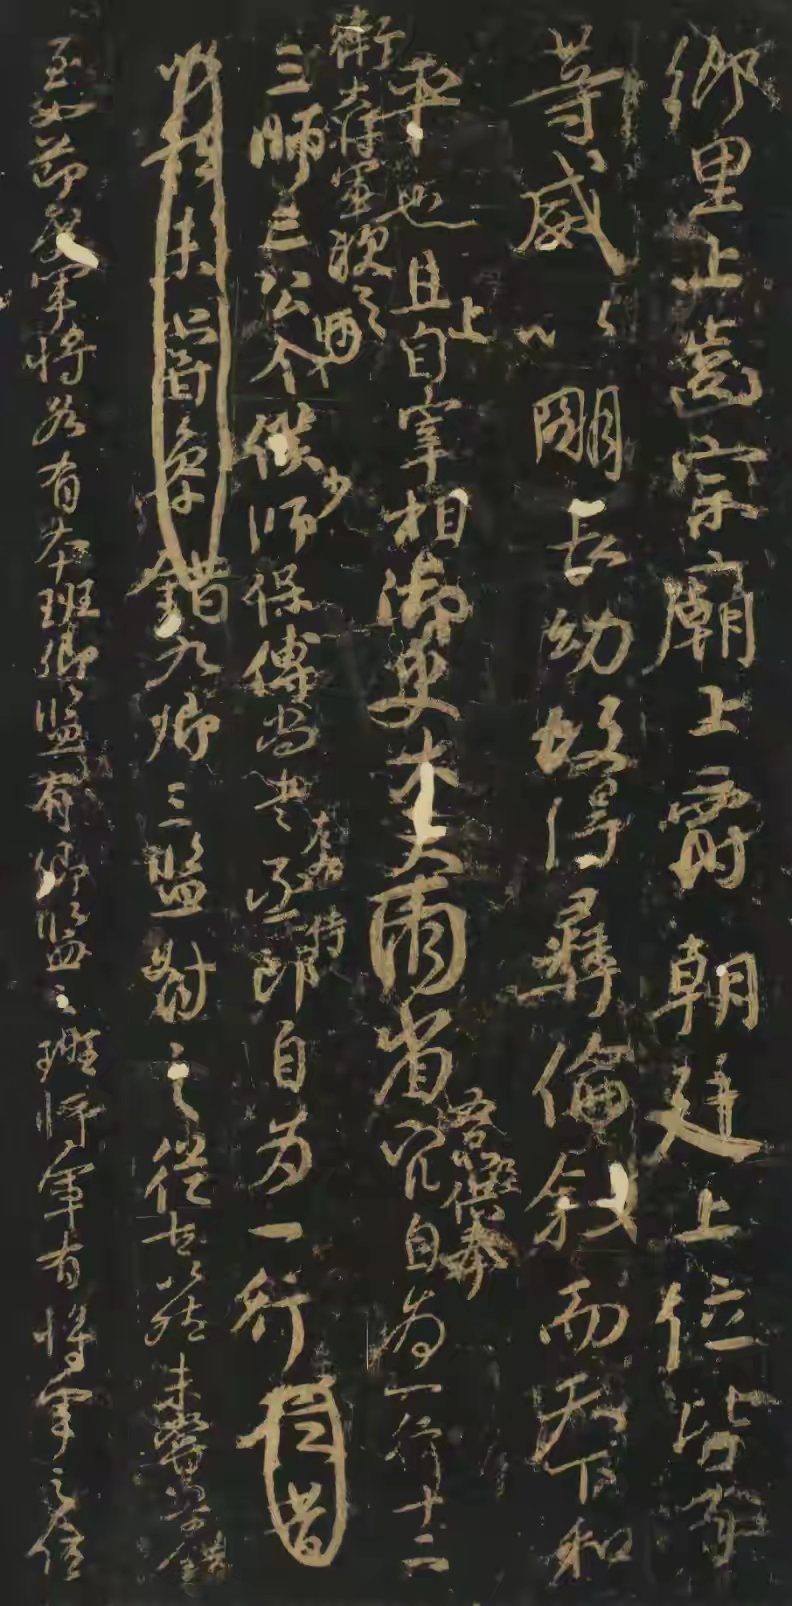 鄉里上齒宗廟上爵朝廷上位皆有
等威以明長幼故得彝倫敘而天下和
平也且上自宰相御史大夫兩省五品供奉官自為一行十二
衛大將軍次之
三師三公令僕少師保傅尚書左右丞侍郎自為一行從古
以然未嘗參錯九卿三監對之從古以然未嘗參錯
至如節度軍將各有本班卿監有卿監之班將軍有將軍之位